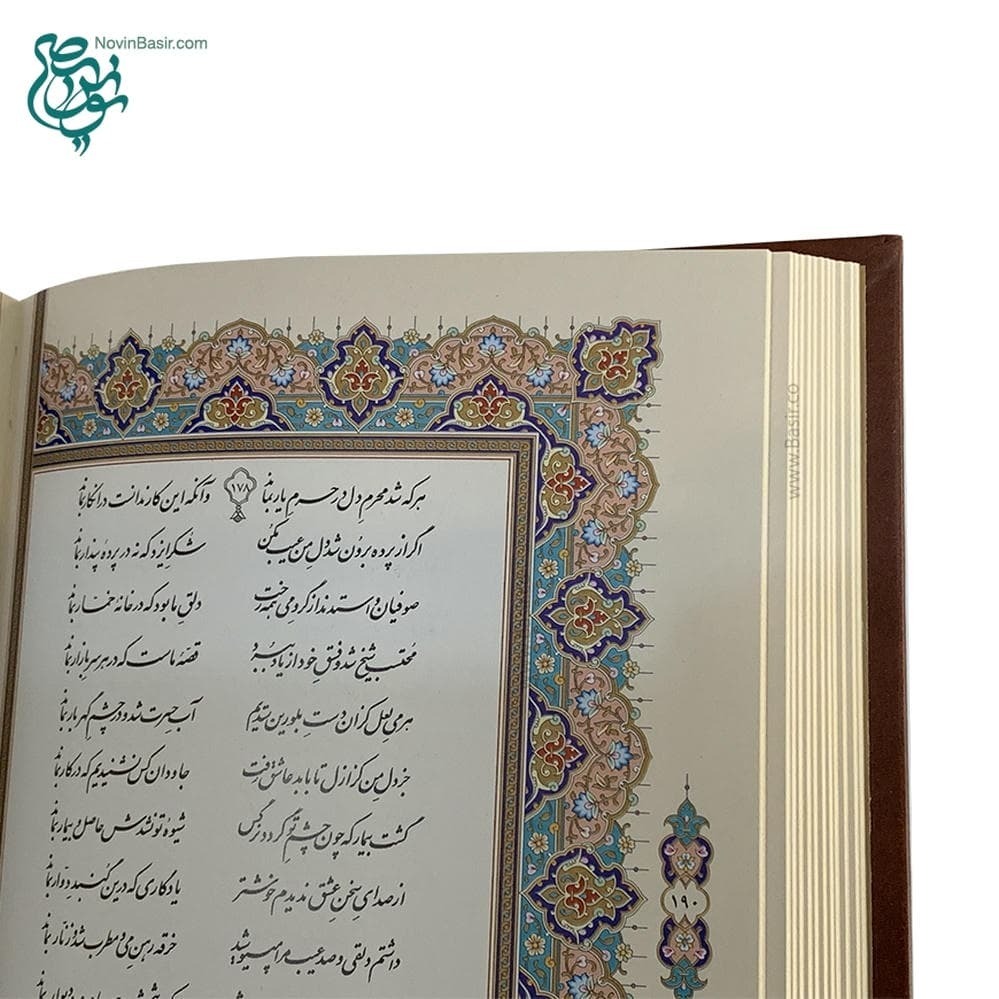 NovinBasir.com
نوین بصیر
هر که شد محرمِ دل در حرمِ یار بماند ۱۷۸ وآنکه این کار ندانست در انکار بماند
اگر از پرده برون شد دلِ من عیب مکن شکرِ ایزد که نه در پردهٔ پندار بماند
صوفیان واستدند از گروِ می همه رخت دلقِ ما بود که در خانهٔ خمّار بماند
محتسب شیخ شد و فسقِ خود از یاد ببرد قصّهٔ ماست که در هر سرِ بازار بماند
هر میِ لعل کزان دستِ بلورین ستدیم آبِ حسرت شد و در چشمِ گهربار بماند
جز دلِ من کز ازل تا بابد عاشق رفت جاودان کس نشنیدیم که در کار بماند
گشت بیمار که چون چشمِ تو گردد نرگس شیوهٔ تو نشدش حاصل و بیمار بماند
از صدای سخنِ عشق ندیدم خوشتر یادگاری که درین گنبدِ دوّار بماند
داشتم دلقی و صد عیب مرا می‌پوشید خرقه رهنِ می و مطرب شد و زنّار بماند
۱۹۰
www.Basir.co